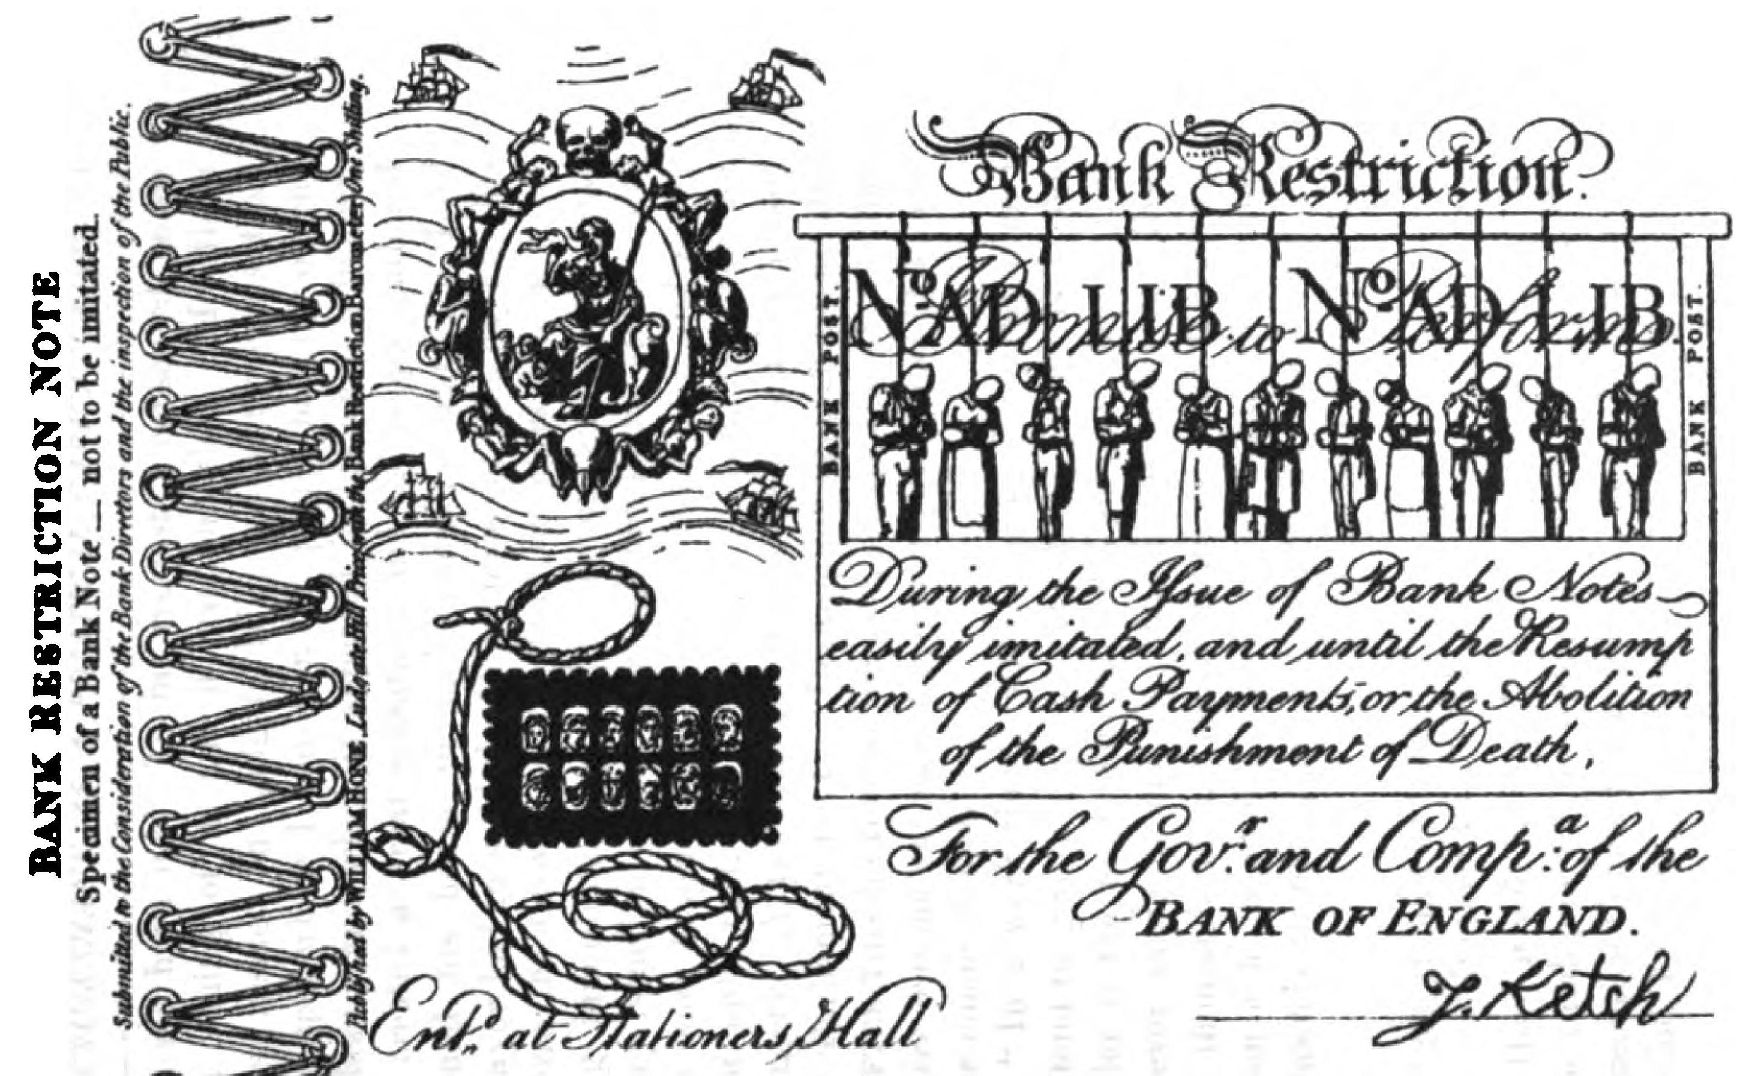 BANK RESTRICTION NOTE
Specimen of a Bank Note — not to be imitated.
Submitted to the Consideration of the Bank Directors and the inspection of the Public.
Published by WILLIAM HONE Ludgate Hill Price with the Bank Restriction Barometer, One Shilling.
Bank Restriction.
No AD LIB No AD LIB
Promise to Perform
BANK POST.
BANK POST.
During the Issue of Bank Notes
easily imitated, and until the Resump
tion of Cash Payments, or the Abolition
of the Punishment of Death,
For the Govr. and Compa. of the
BANK OF ENGLAND.
J. Ketch
Entd. at Stationers Hall